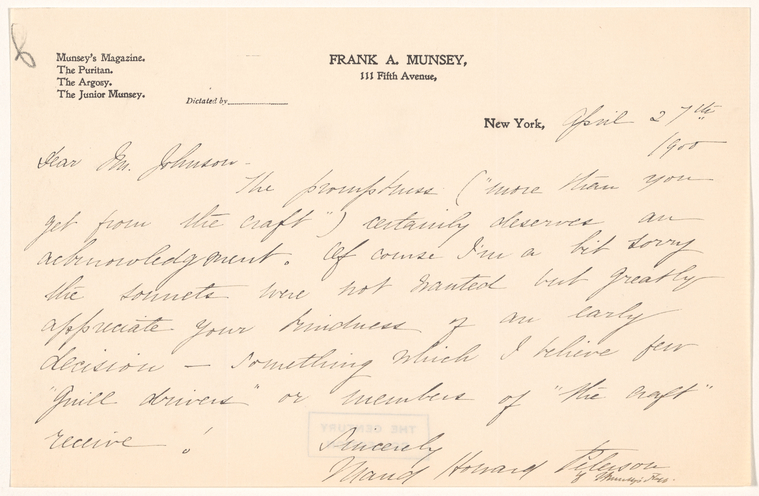 8
Munsey's Magazine.
The Puritan.
The Argosy.
The Junior Munsey.
FRANK A. MUNSEY,
111 Fifth Avenue,
Dictated by
New York, April 27th
1900
Dear Mr. Johnson -
The promptness ("more than you
get from the craft") certainly deserves an
acknowledgment. Of course I'm a bit sorry
the sonnets were not wanted but greatly
appreciate your kindness of an early
decision — something which I believe few
"quill drivers" or members of "the craft"
receive!
Sincerely
Maud Howard Peterson
THE CENTURY